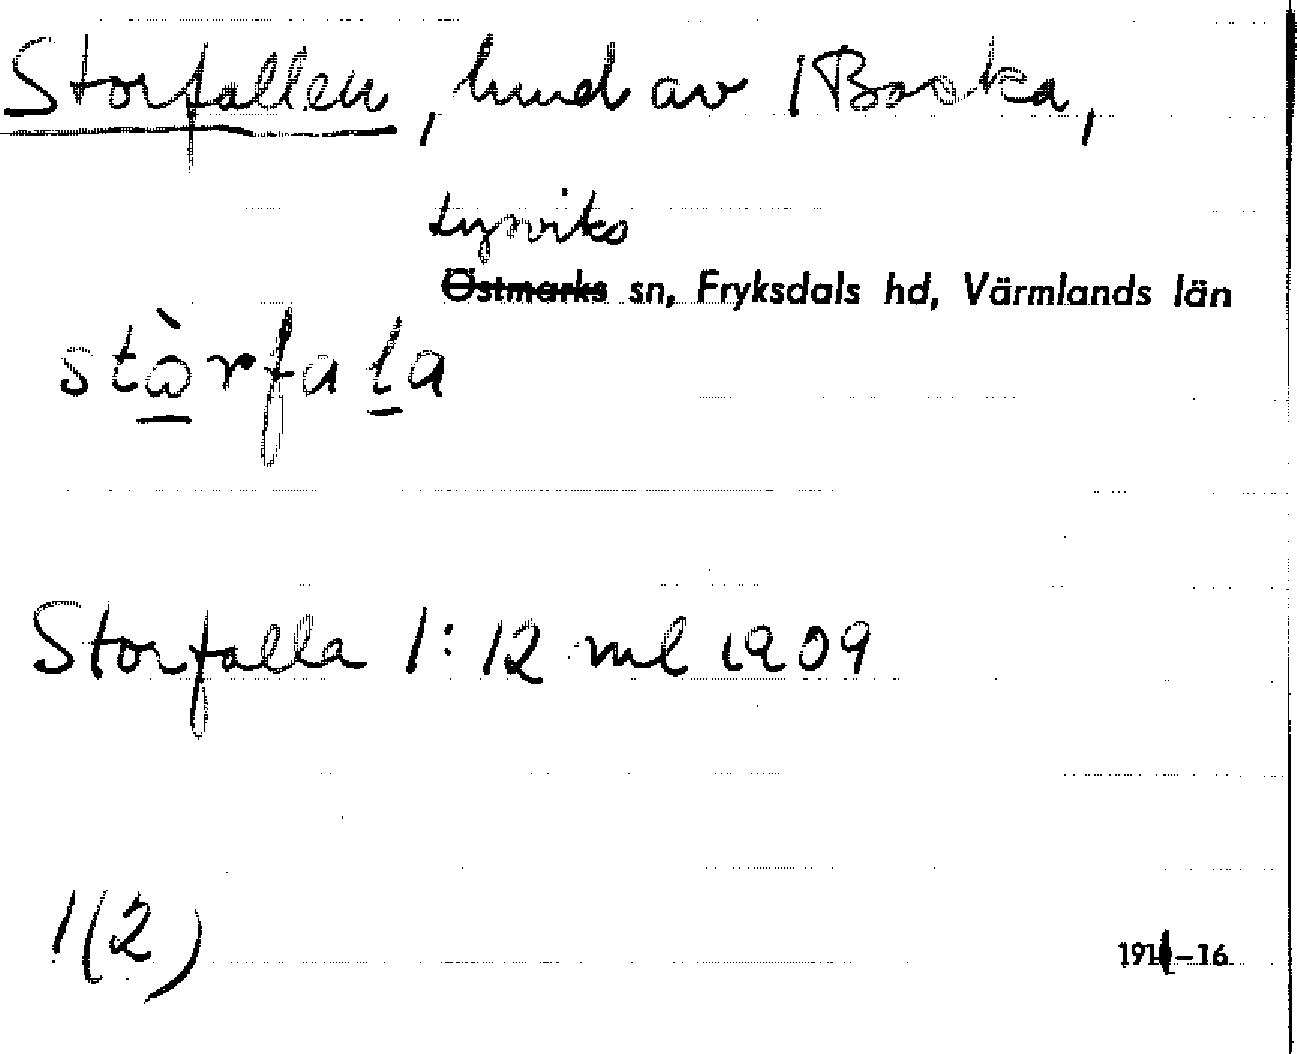 Storfallen, hmd av 1 Bocka,
Lysviks
Östmarks sn, Fryksdals hd, Värmlands län
stὼrfala
Storfalla 1:12 ml 1909
1(2)
191 –16